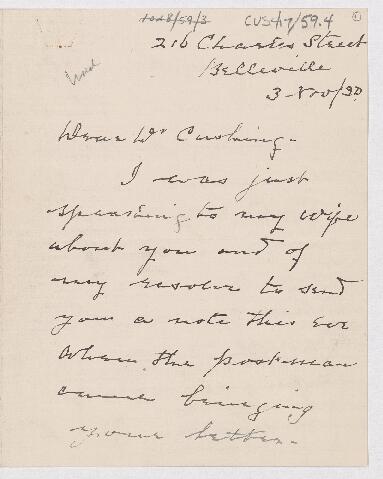 CUS4/7/59.4
1
216 Charles Street
Belleville
3 Nov/30
Dear Dr Cushing -
I was just
speaking to my wife
about you and of
my resolve to send
you a note this eve
when the post-man
came bringing
your letter -